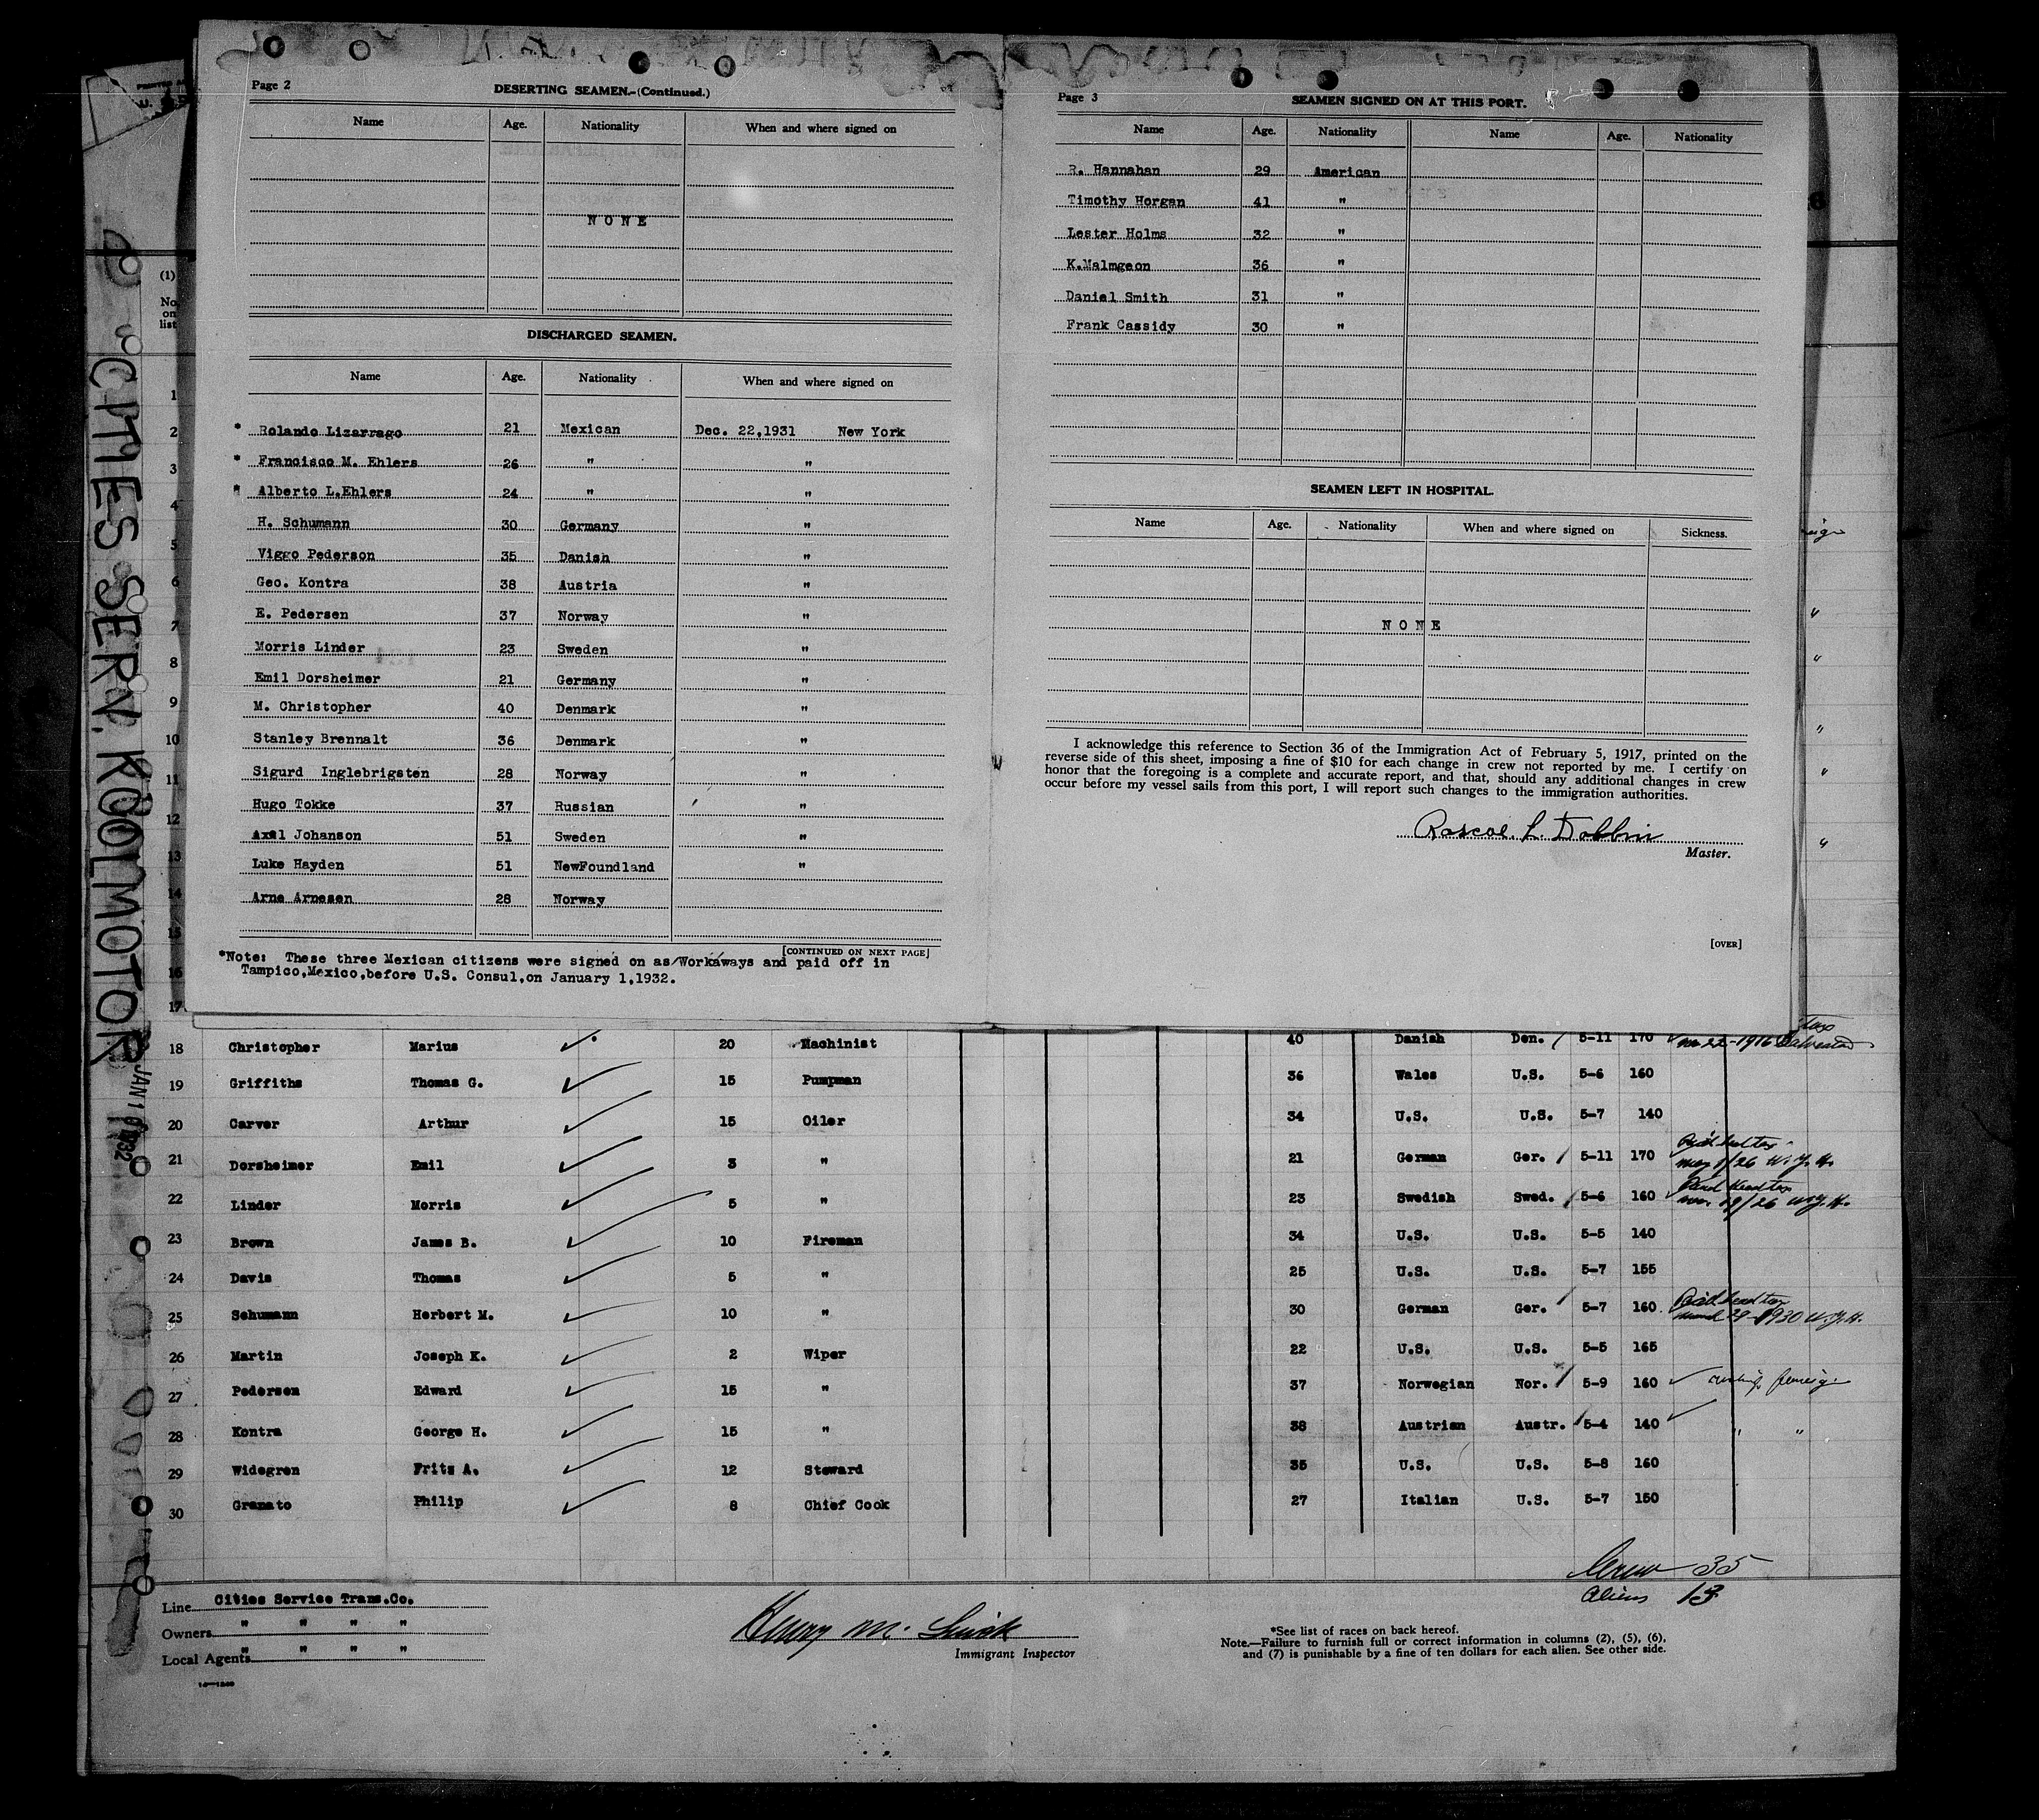 Page 2
DESERTING SEAMEN.-(Continued.)
Name Age. Nationality When and where signed on
NONE
DISCHARGED SEAMEN.
Name Age. Nationality When and where signed on
* Rolando Lizarrago 21 Mexican Dec. 22,1931 New York
* Francisco M. Ehlers 26 " "
* Alberto L.Ehlers 24 " "
H. Schumann 30 Germany "
Viggo Pederson 35 Danish "
Geo. Kontra 38 Austria "
E. Pedersen 37 Norway "
Morris Linder 23 Sweden "
Emil Dorsheimer 21 Germany "
M. Christopher 40 Denmark "
Stanley Brennalt 36 Denmark "
Sigurd Inglebrigsten 28 Norway "
Hugo Tokke 37 Russian "
Axel Johanson 51 Sweden "
Luke Hayden 51 NewFoundland "
Arne Arnesen 28 Norway
[CONTINUED ON NEXT PAGE]
*Note: These three Mexican citizens were signed on as Workaways and paid off in
Tampico,Mexico,before U.S. Consul,on January 1,1932.
Page 3
SEAMEN SIGNED ON AT THIS PORT.
Name Age. Nationality Name Age. Nationality
R. Hannahan 29 American
Timothy Horgan 41 "
Lester Holms 32 "
K.Malmgeon 36 "
Daniel Smith 31 "
Frank Cassidy 30 "
SEAMEN LEFT IN HOSPITAL.
Name Age. Nationality When and where signed on Sickness.
NONE
I acknowledge this reference to Section 36 of the Immigration Act of February 5, 1917, printed on the
reverse side of this sheet, imposing a fine of $10 for each change in crew not reported by me. I certify on
honor that the foregoing is a complete and accurate report, and that, should any additional changes in crew
occur before my vessel sails from this port, I will report such changes to the immigration authorities.
Roscoe L. Dobbin
Master.
[OVER]
(1)
No.
on
list
1
2
3
4
5
6
7
8
9
10
11
12
13
14
15
16
17
CITIES SERV. KOOLMOTOR
JAN 1 1932
18 Christopher Marius 20 Machinist 40 Danish Den. 5-11 170
19 Griffiths Thomas G. 15 Pumpman 36 Wales U.S. 5-6 160
20 Carver Arthur 15 Oiler 34 U.S. U.S. 5-7 140
21 Dorsheimer Emil 3 " 21 German Ger. 5-11 170 Paid head tax
May 1/26 N.Y.
22 Linder Morris 5 " 23 Swedish Swed. 5-6 160 Paid Head tax
23 Brown James B. 10 Fireman 34 U.S. U.S. 5-5 140
24 Davis Thomas 5 " 25 U.S. U.S. 5-7 155
25 Schumann Herbert M. 10 " 30 German Ger. 5-7 160 Paid head tax
26 Martin Joseph K. 2 Wiper 22 U.S. U.S. 5-5 165
27 Pedersen Edward 15 " 37 Norwegian Nor. 5-9 160
28 Kontra George H. 15 " 38 Austrian Austr. 5-4 140 " "
29 Widegren Fritz A. 12 Steward 35 U.S. U.S. 5-8 160
30 Granato Philip 8 Chief Cook 27 Italian U.S. 5-7 150
Crew 35
Aliens 13
Line Cities Service Trans.Co.
Owners " " " "
Local Agents " " " "
Henry M.
Immigrant Inspector
*See list of races on back hereof.
Note.—Failure to furnish full or correct information in columns (2), (5), (6),
and (7) is punishable by a fine of ten dollars for each alien. See other side.